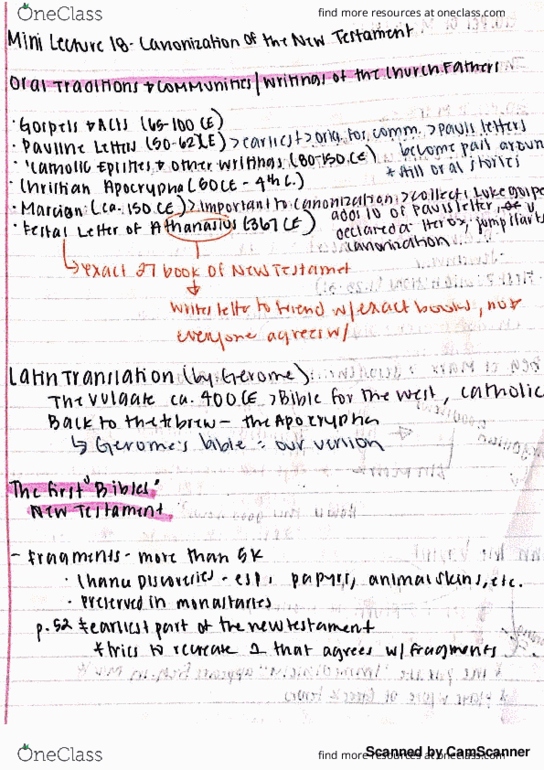 OneClass
find more resources at oneclass.com
Mini Lecture 18 - Canonization of the New Testament
Oral Traditions + Communities / Writings of the Church Fathers
· Gospels + Acts (65-100 CE)
· Pauline Letters (50-62 CE) > earliest > orig. for comm. > paul's letters
become pass around
· "Catholic Epistles + other writings (80-150 CE)
* still oral stories
· Christian Apocrypha (60 CE - 4th C.)
· Marcion (ca. 150 CE) > important to canonization > collects Luke gospel
adds 10 of Paul's letter,
declared a heretic, jumpstarts
canonization
· Festal Letter of Athanasius (367 CE)
↳ exact 27 book of New Testamet
writes letter to friend w/ exact books, not
everyone agrees w/
Latin Translation (by Gerome)
The Vulgate ca. 400 CE > Bible for the west, catholic
Back to the Hebrew - the Apocrypha
↳ Gerome's bible = our version
The First "Bibles"
New Testament
- Fragments - more than 5K
· discoveries - esp. papyri, animal skins, etc.
· Preserved in monastaries
p.52 * earliest part of the new testament
* tries to recreate 1 that agrees w/ fragments
OneClass
find more resources at oneclass.com
Scanned by CamScanner